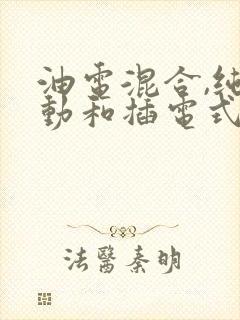 油電混合,純
動和插電式
法醫秦明